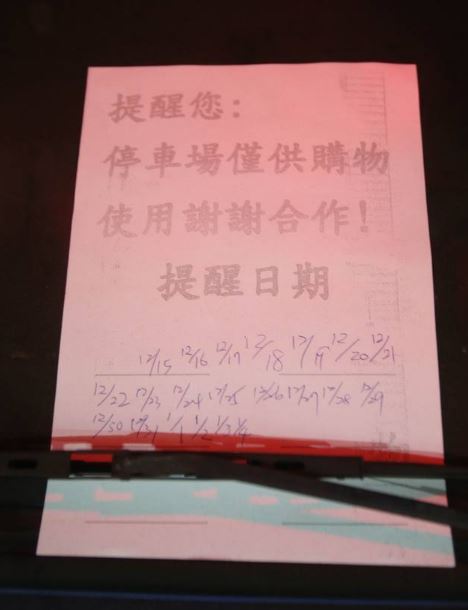 提醒您：
停車場僅供購物
使用謝謝合作！
提醒日期
12/15 12/16 12/17 12/18 12/19 12/20 12/21
12/22 12/23 12/24 12/25 12/26 12/27 12/28 12/29
12/30 12/31 1/1 1/2 1/3 1/4